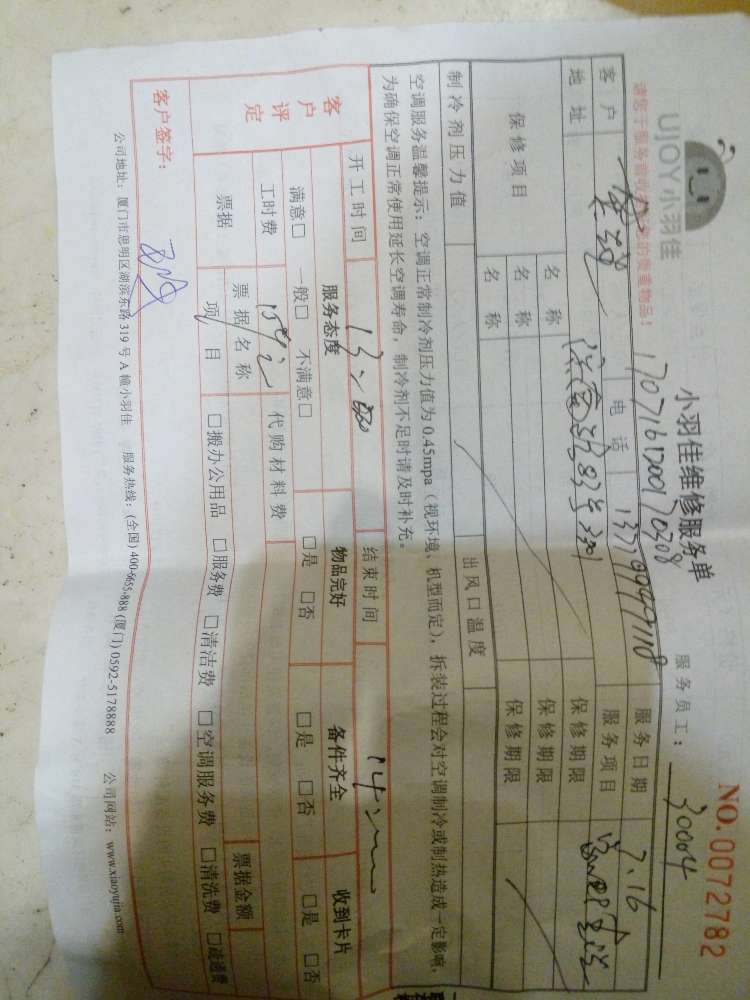 UJOY小羽佳
小羽佳维修服务单
NO.0072782
请您于服务前收好您的贵重物品!
服务员工: 30004
客户 电话 服务日期 7.16
地址 服务项目
保修项目 名称 保修期限
名称 保修期限
名称 保修期限
制冷剂压力值 出风口温度
空调服务温馨提示:空调正常制冷剂压力值为0.45mpa(视环境、机型而定),拆装过程会对空调制冷或制热造成一定影响,
为确保空调正常使用延长空调寿命,制冷剂不足时请及时补充。
开工时间 结束时间
客户评定 服务态度 物品完好 备件齐全 收到卡片
满意□ 一般□ 不满意□ □是 □否 □是 □否 □是 □否
工时费 代购材料费
票据 票据名称 票据金额
项目 □搬办公用品 □服务费 □清洁费 □空调服务费 □清洗费 □疏通费
客户签字:
公司地址:厦门市思明区湖滨东路319号A幢小羽佳 服务热线:(全国)400-6655-888 (厦门)0592-5178888 公司网站:www.xiaoyujia.com